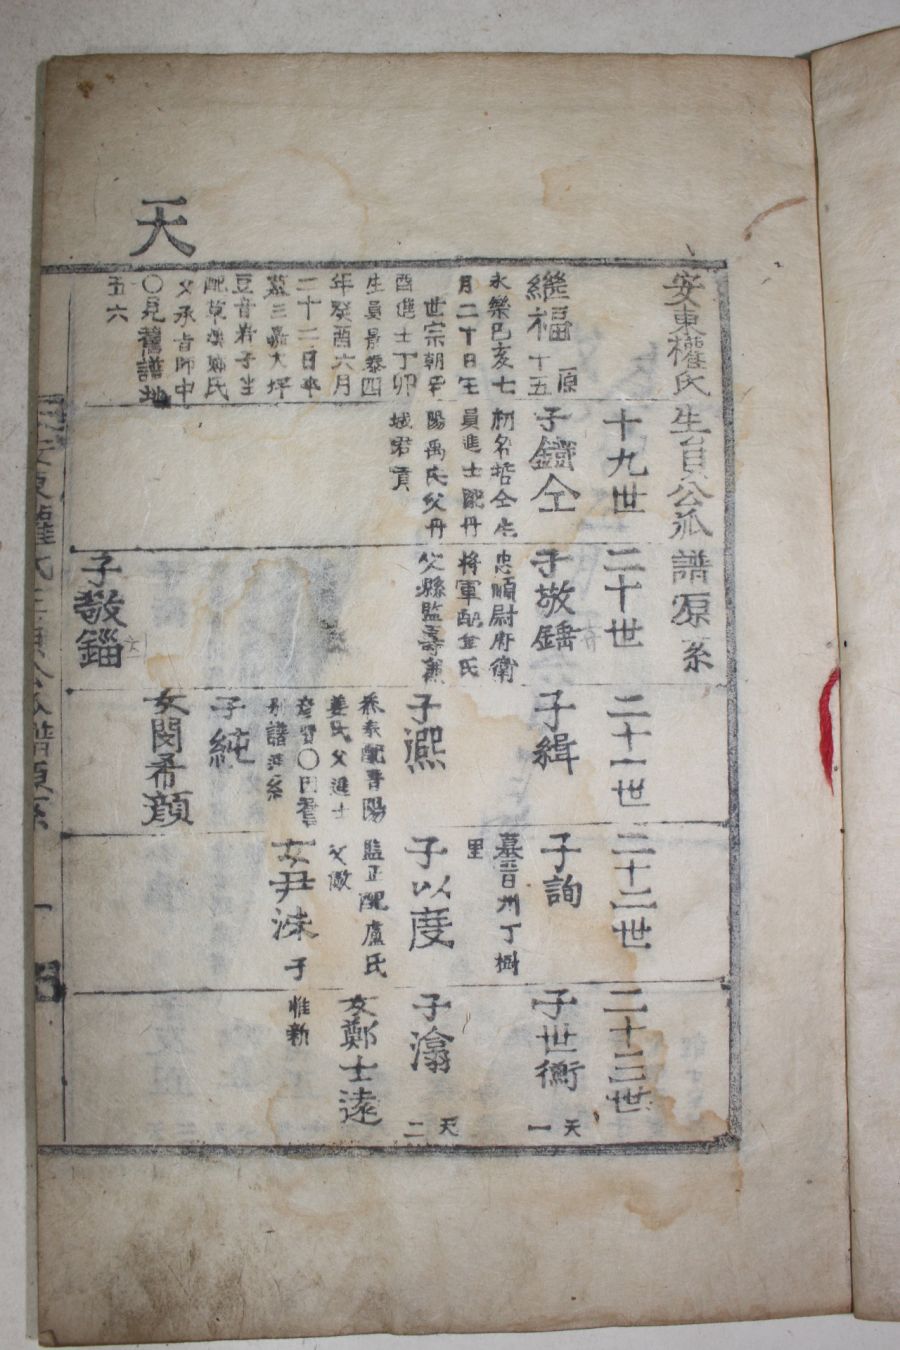 天
安東權氏生員公派譜源系
繼福
原
十五
永樂己亥七
月二十日生
世宗朝辛
酉進士丁卯
生員景泰四
年癸酉六月
二十二日卒
墓三嘉大坪
豆音谷子坐
配草溪鄭氏
父承旨師中
〇見舊譜地
五六
十九世
子鐵仝
初名哲仝生
員進士配丹
陽禹氏父丹
城君貢
二十世
子敬鑄
忠順尉府衛
將軍配金氏
父縣監壽
子敬錙
二十一世
子緝
子凞
參奉配晋陽
姜氏父進士
別譜源系
子純
女閔希顔
二十二世
子詢
墓晋州丁樹
里
子以度
監正配盧氏
父儆
女尹洙
子
惟新
二十三世
子世衡
天一
子滃
天二
女鄭士遠
安東權氏生員公派譜源系
一